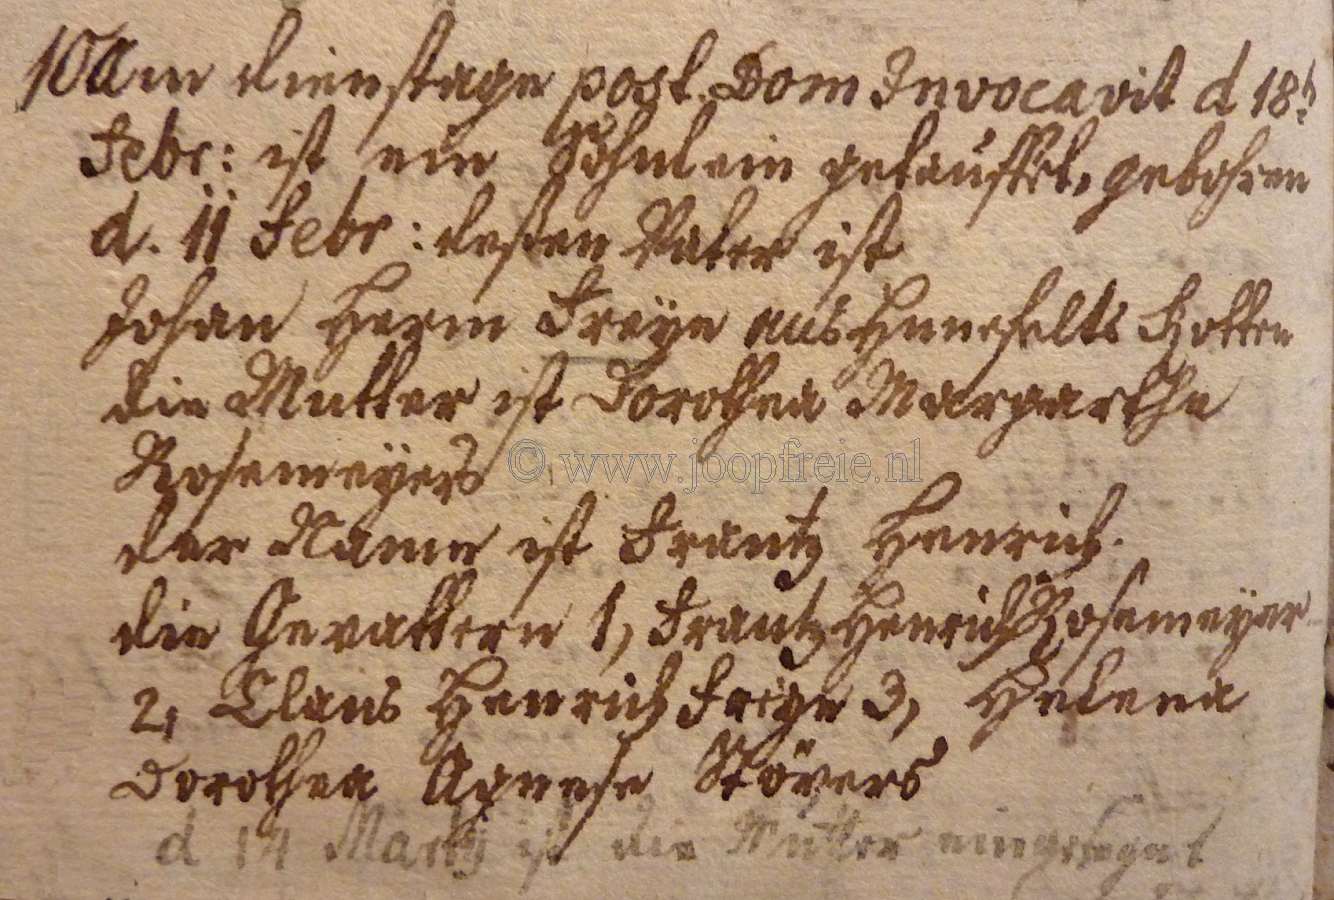 10 Am dienstage post. Dom Invocavit d 18t
Febr: ist ein Söhnlein getauffet, gebohren
d. 11 Febr: deßen Vater ist
Johan Herm Freÿe aus Hunefelts Kotten
die Mutter ist Dorothea Margarethe
Rosemeÿers
© www.joopfreie.nl
der Name ist Frantz Henrich.
die Gevattern 1, Frantz Henrich Rosemeÿer
2, Claus Henrich Freÿe 3, Helena
Dorothea Agnese Stövers
d 14 Martÿ ist die Mutter eingesegnet